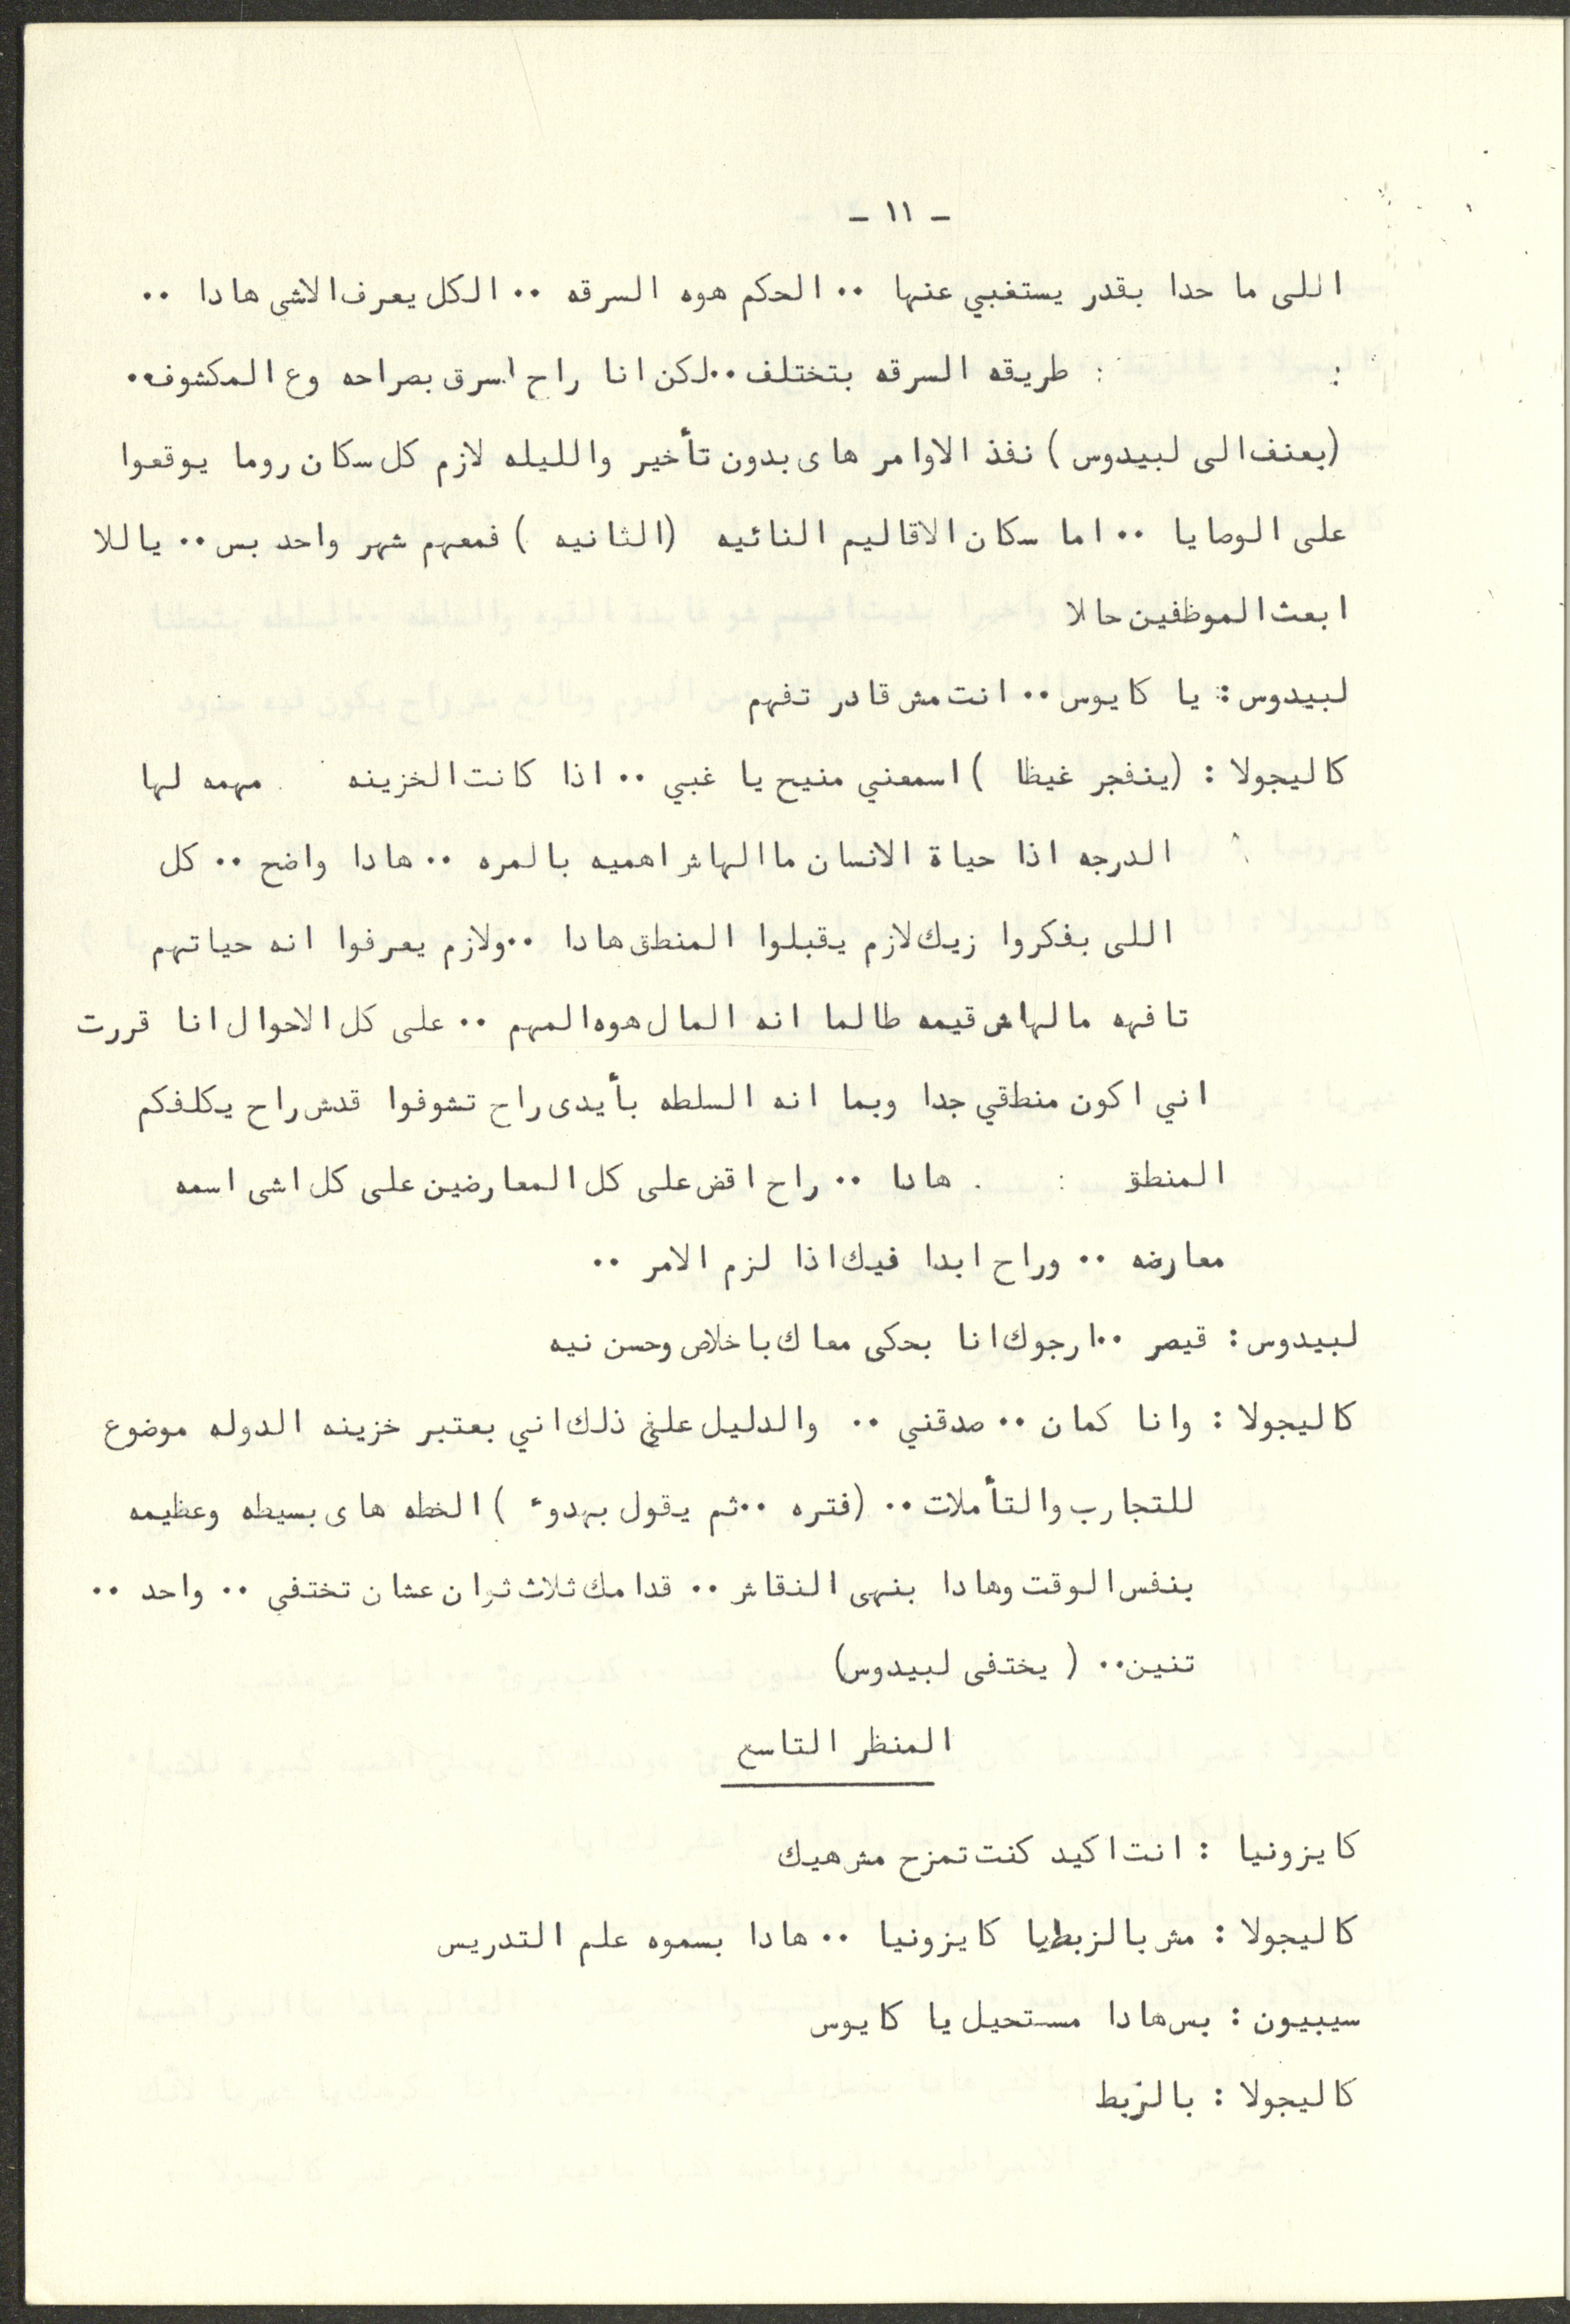 - ١١ -
اللى ما حدا بقدر يستغبي عنها ٠٠ الحكم هوه السرقه ٠٠ الكل يعرف الاشى هادا ٠٠
: : طريقه السرقه بتختلف ٠٠ لكن انا راح اسرق بصراحه وع المكشوف٠٠
(بعنف الى لبيدوس) نفذ الاوامر هاى بدون تأخير والليله لازم كل سكان روما يوقعوا
على الوصايا ٠٠ اما سكان الاقاليم النائيه (الثانيه ) فمعهم شهر واحد بس ٠٠ ياللا
ابعث الموظفين حالا
لبيدوس : يا كايوس ٠٠ انت مش قادر تفهم
كاليجولا : (ينفجر غيظا ) اسمعني منيح يا غبي ٠٠ اذا كانت الخزينه مهمه لها
الدرجه اذا حياة الانسان ما الهاش اهميه بالمره ٠٠ هادا واضح ٠٠ كل
اللى بفكروا زيك لازم يقبلوا المنطق هادا ٠٠ ولازم يعرفوا انه حياتهم
تافهه مالهاش قيمه طالما انه المال هوه المهم ٠٠ على كل الاحوال انا قررت
اني اكون منطقي جدا وبما انه السلطه بأيدى راح تشوفوا قدش راح يكلفكم
المنطق : هادا ٠٠ راح اقض على كل المعارضين على كل اشى اسمه
معارضه ٠٠ وراح ابدا فيك اذا لزم الامر ٠٠
لبيدوس : قيصر ٠٠ ارجوك انا بحكى معاك باخلاص وحسن نيه
كاليجولا : وانا كمان ٠٠ صدقني ٠٠ والدليل على ذلك اني بعتبر خزينه الدوله موضوع
للتجارب والتأملات ٠٠ (فتره ٠٠ ثم يقول بهدوء ) الخطه هاى بسيطه وعظيمه
بنفس الوقت وهادا بنهى النقاش ٠٠ قدامك ثلاث ثوان عشان تختفى ٠٠ واحد ٠٠
تنين ٠٠ ( يختفى لبيدوس)
المنظر التاسع
كايزونيا : انت اكيد كنت تمزح مش هيك
كاليجولا : مش بالزبط يا كايزونيا ٠٠ هادا بسموه علم التدريس
سيبيون : بس هادا مستحيل يا كايوس
كاليجولا : بالزبط